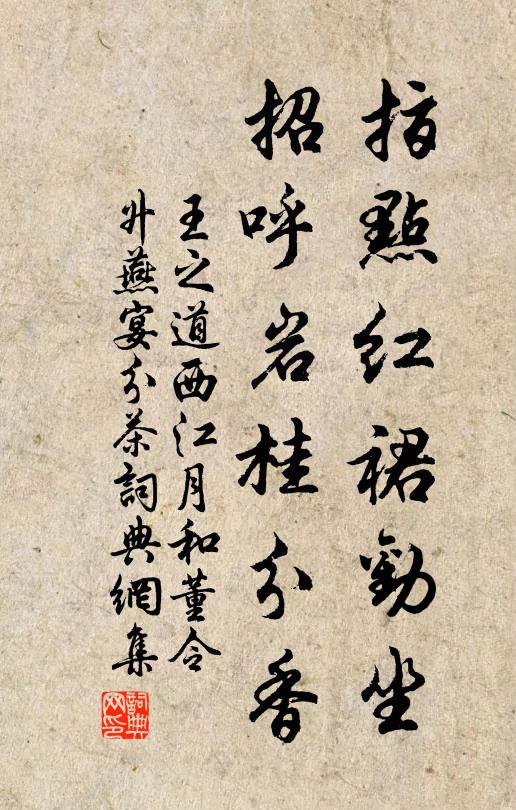 指點紅裙勸坐
招呼岩桂分香
王之道西江月和董令
升燕宴分茶詞典網集
詞典網印